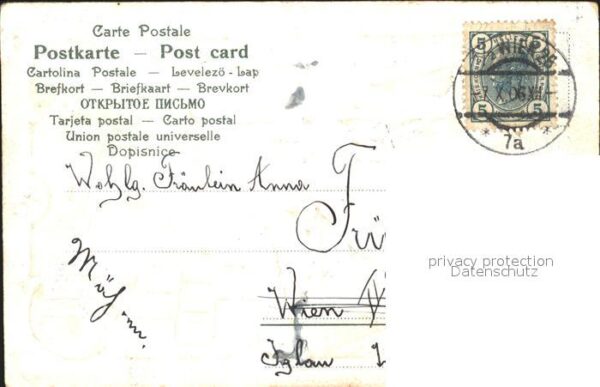 Carte Postale
Postkarte — Post card
Cartolina Postale — Levelező-Lap
Brefkort — Briefkaart — Brevkort
ОТКРЫТОЕ ПИСЬМО
Tarjeta postal — Carto postal
Union postale universelle
Dopisnice
5 5
WIEN
7 X 06
5 5
* 7a *
Wohlg. Fräulein Anna
privacy protection
Datenschutz
Wien
Iglau
Mäh